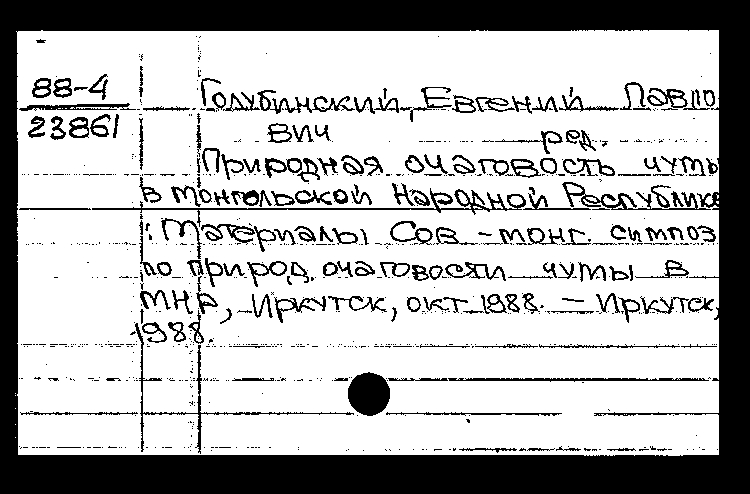 88-4
23861
Голубинский, Евгений Павло
вич ред.
Природная очаговость чумы
в Монгольской Народной Республике
: Материалы Сов.-монг. симпоз
по природ. очаговости чумы в
МНР, Иркутск, окт 1988. – Иркутск,
1988.